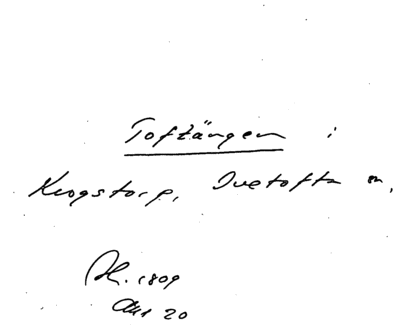 Toftängen i
Krogstorp, Ivetofta sn,
Ak. 1809
Akt 20